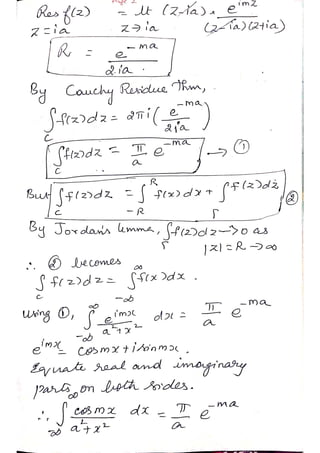 Res f(z) = lt (z-ia) * e^{imz}
z=ia z→ia (z-ia)(z+ia)
R = e^{-ma} / 2ia .
By Cauchy Residue Thm,
∫_C f(z)dz = 2πi ( e^{-ma} / 2ia )
∫_C f(z)dz = π/a e^{-ma} → ①
But ∫_C f(z)dz = ∫_{-R}^{R} f(x)dx + ∫_Γ f(z)dz ②
By Jordan's lemma, ∫_Γ f(z)dz → 0 as
|z| = R → ∞
∴ ② becomes
∫_C f(z)dz = ∫_{-∞}^{∞} f(x)dx .
Using ①, ∫_{-∞}^{∞} e^{imx} / a²+x² dx = π/a e^{-ma}
e^{imx} = cosmx + i sinmx .
Equate real and imaginary
parts on both sides.
∴ ∫_{-∞}^{∞} cosmx / a²+x² dx = π/a e^{-ma}